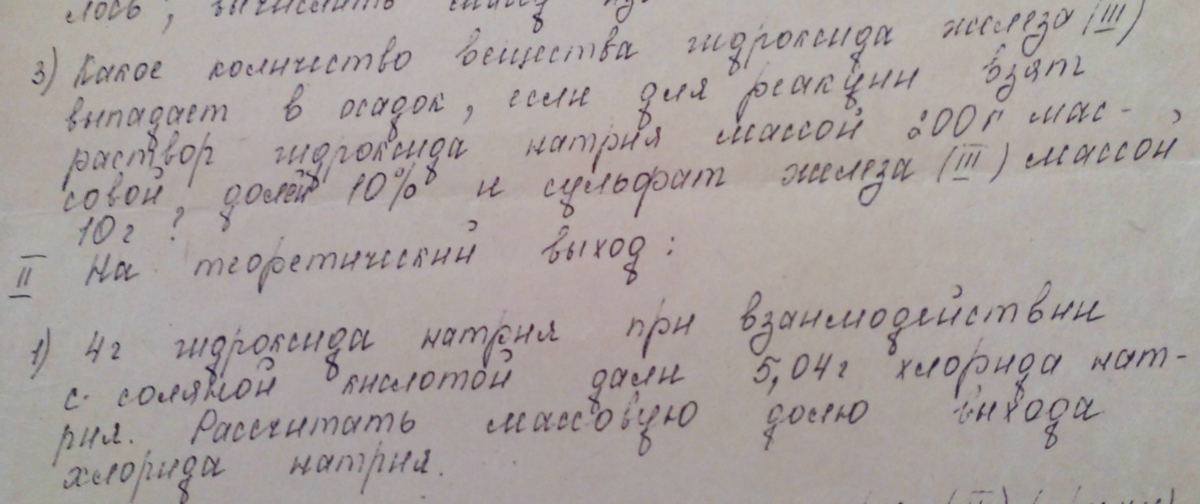 лось, вычислить массу
3) Какое количество вещества гидроксида железа (III)
выпадает в осадок, если для реакции взят
раствор гидроксида натрия массой 200г мас-
совой долей 10% и сульфат железа (III) массой
10г ?
II На теоретический выход:
1) 4г гидроксида натрия при взаимодействии
с соляной кислотой дали 5,04г хлорида нат-
рия. Рассчитать массовую долю выхода
хлорида натрия.